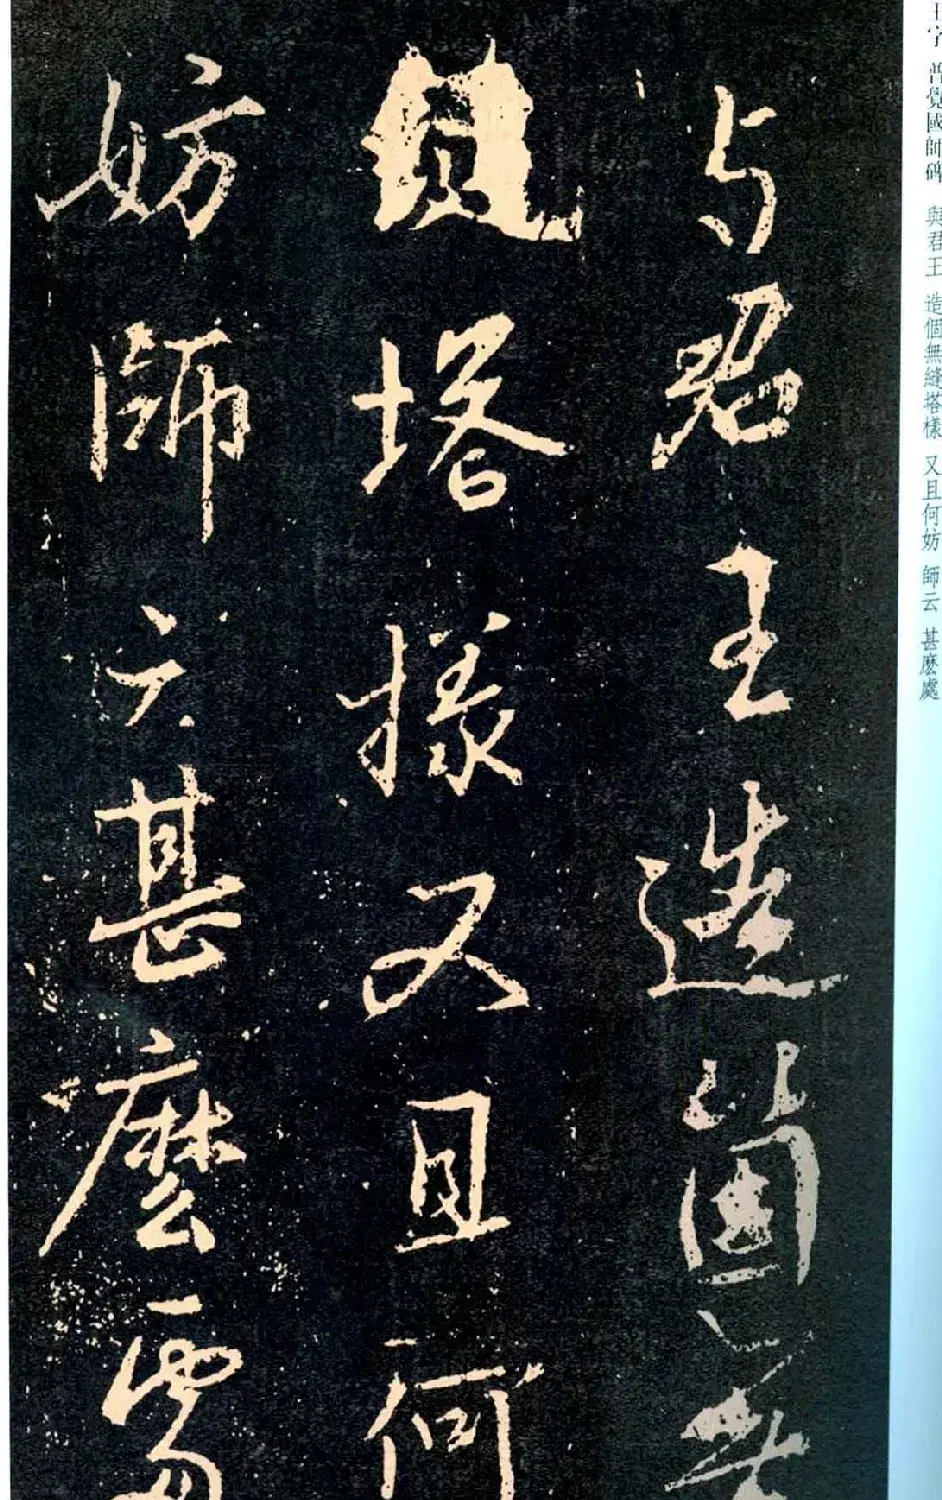 与君王造箇無
塔樣又且何
妨師云甚麽處
王字 普覺國師碑 與君王 造個無縫塔樣 又且何妨 師云 甚麽處